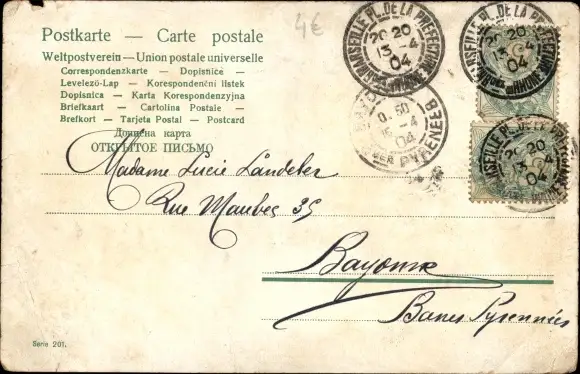 4€
Postkarte — Carte postale
Weltpostverein — Union postale universelle
Correspondenzkarte — Dopisnice —
Levelező-Lap — Korespondenční lístek
Dopisnica — Karta Korespondenzyjna
Briefkaart — Cartolina Postale —
Brefkort — Tarjeta Postal — Postcard
Дописна карта
ОТКРЫТОЕ ПИСЬМО
MARSEILLE PL. DE LA PREFECTURE
20 20
13 -4
04
MARSEILLE PL. DE LA PREFECTURE
20 20
13 -4
04
BSES PYRENEES
-4
04
MARSEILLE PL. DE LA PREFECTURE
20 20
13 -4
04
Madame Lucie
Rue 35
Bayonne
Basses Pyrennées
Serie 201.